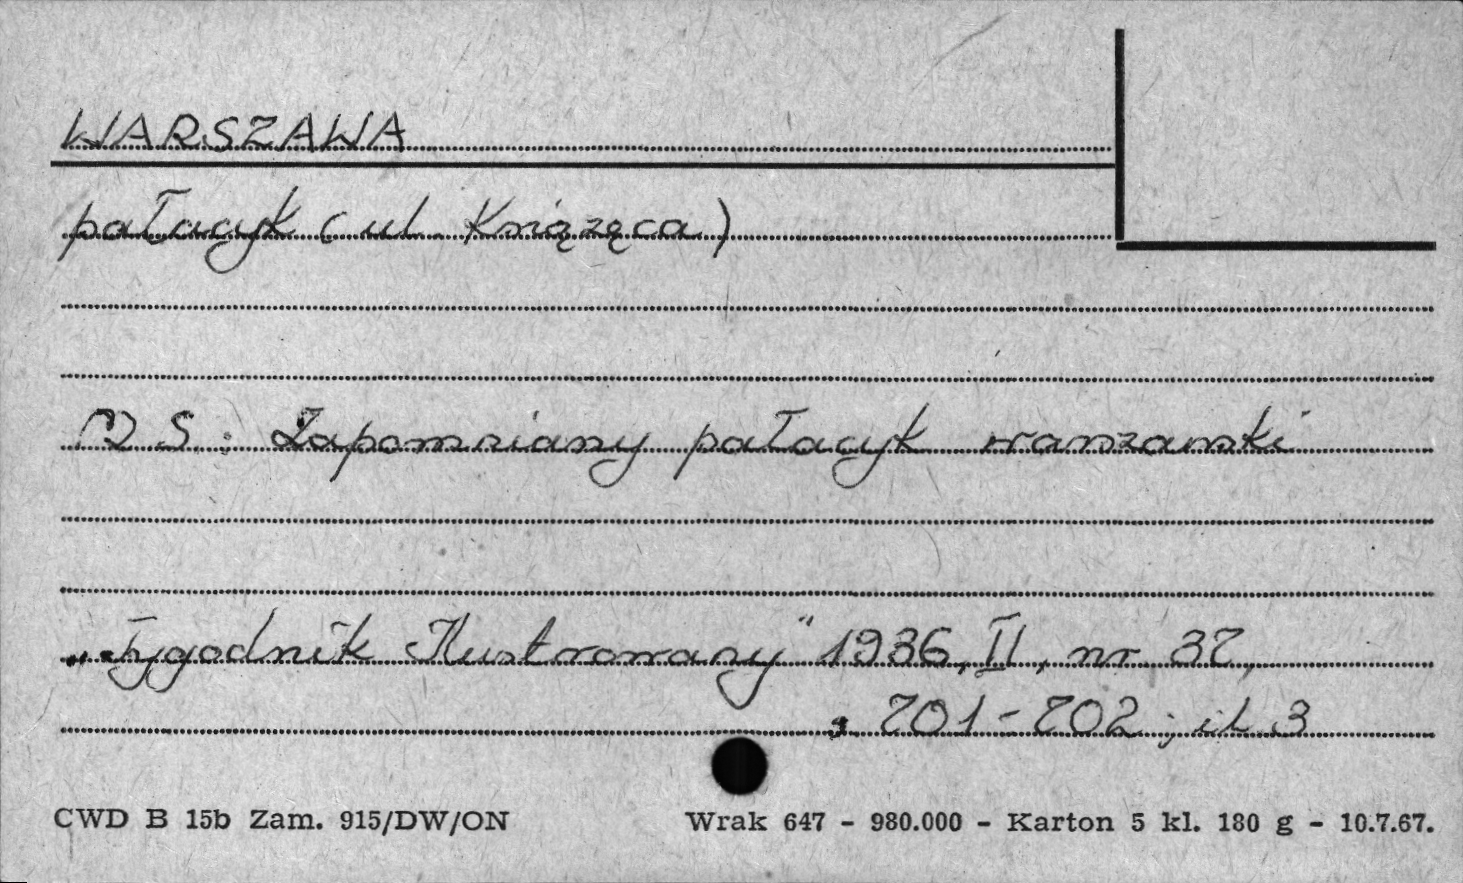 WARSZAWA
pałacyk (ul. Książęca)
M S : Zapomniany pałacyk warszawski
„Tygodnik Ilustrowany" 1936, II, nr 37,
s. 701-702 ; il 3
CWD B 15b Zam. 915/DW/ON Wrak 647 - 980.000 - Karton 5 kl. 180 g - 10.7.67.